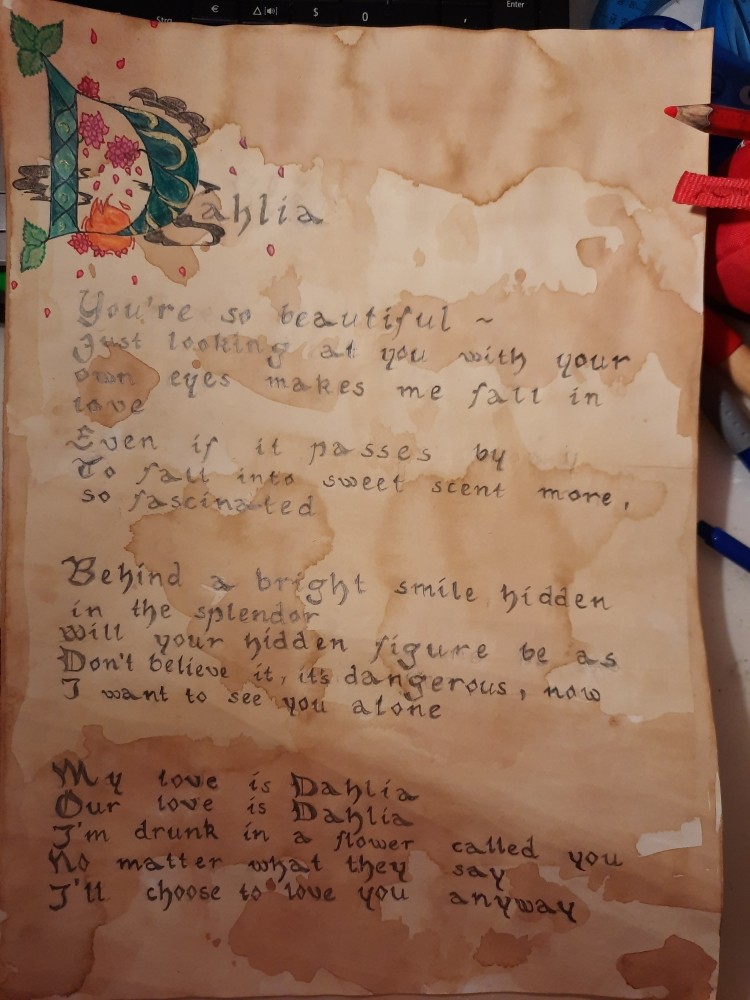 Strg
€
$
0
,
Enter
Dahlia
You're so beautiful ~
Just looking at you with your
own eyes makes me fall in
love
Even if it passes by
To fall into sweet scent more,
so fascinated
Behind a bright smile hidden
in the splendor
Will your hidden figure be as
Don't believe it, it's dangerous, now
I want to see you alone
My love is Dahlia
Our love is Dahlia
I'm drunk in a flower called you
No matter what they say
I'll choose to love you anyway